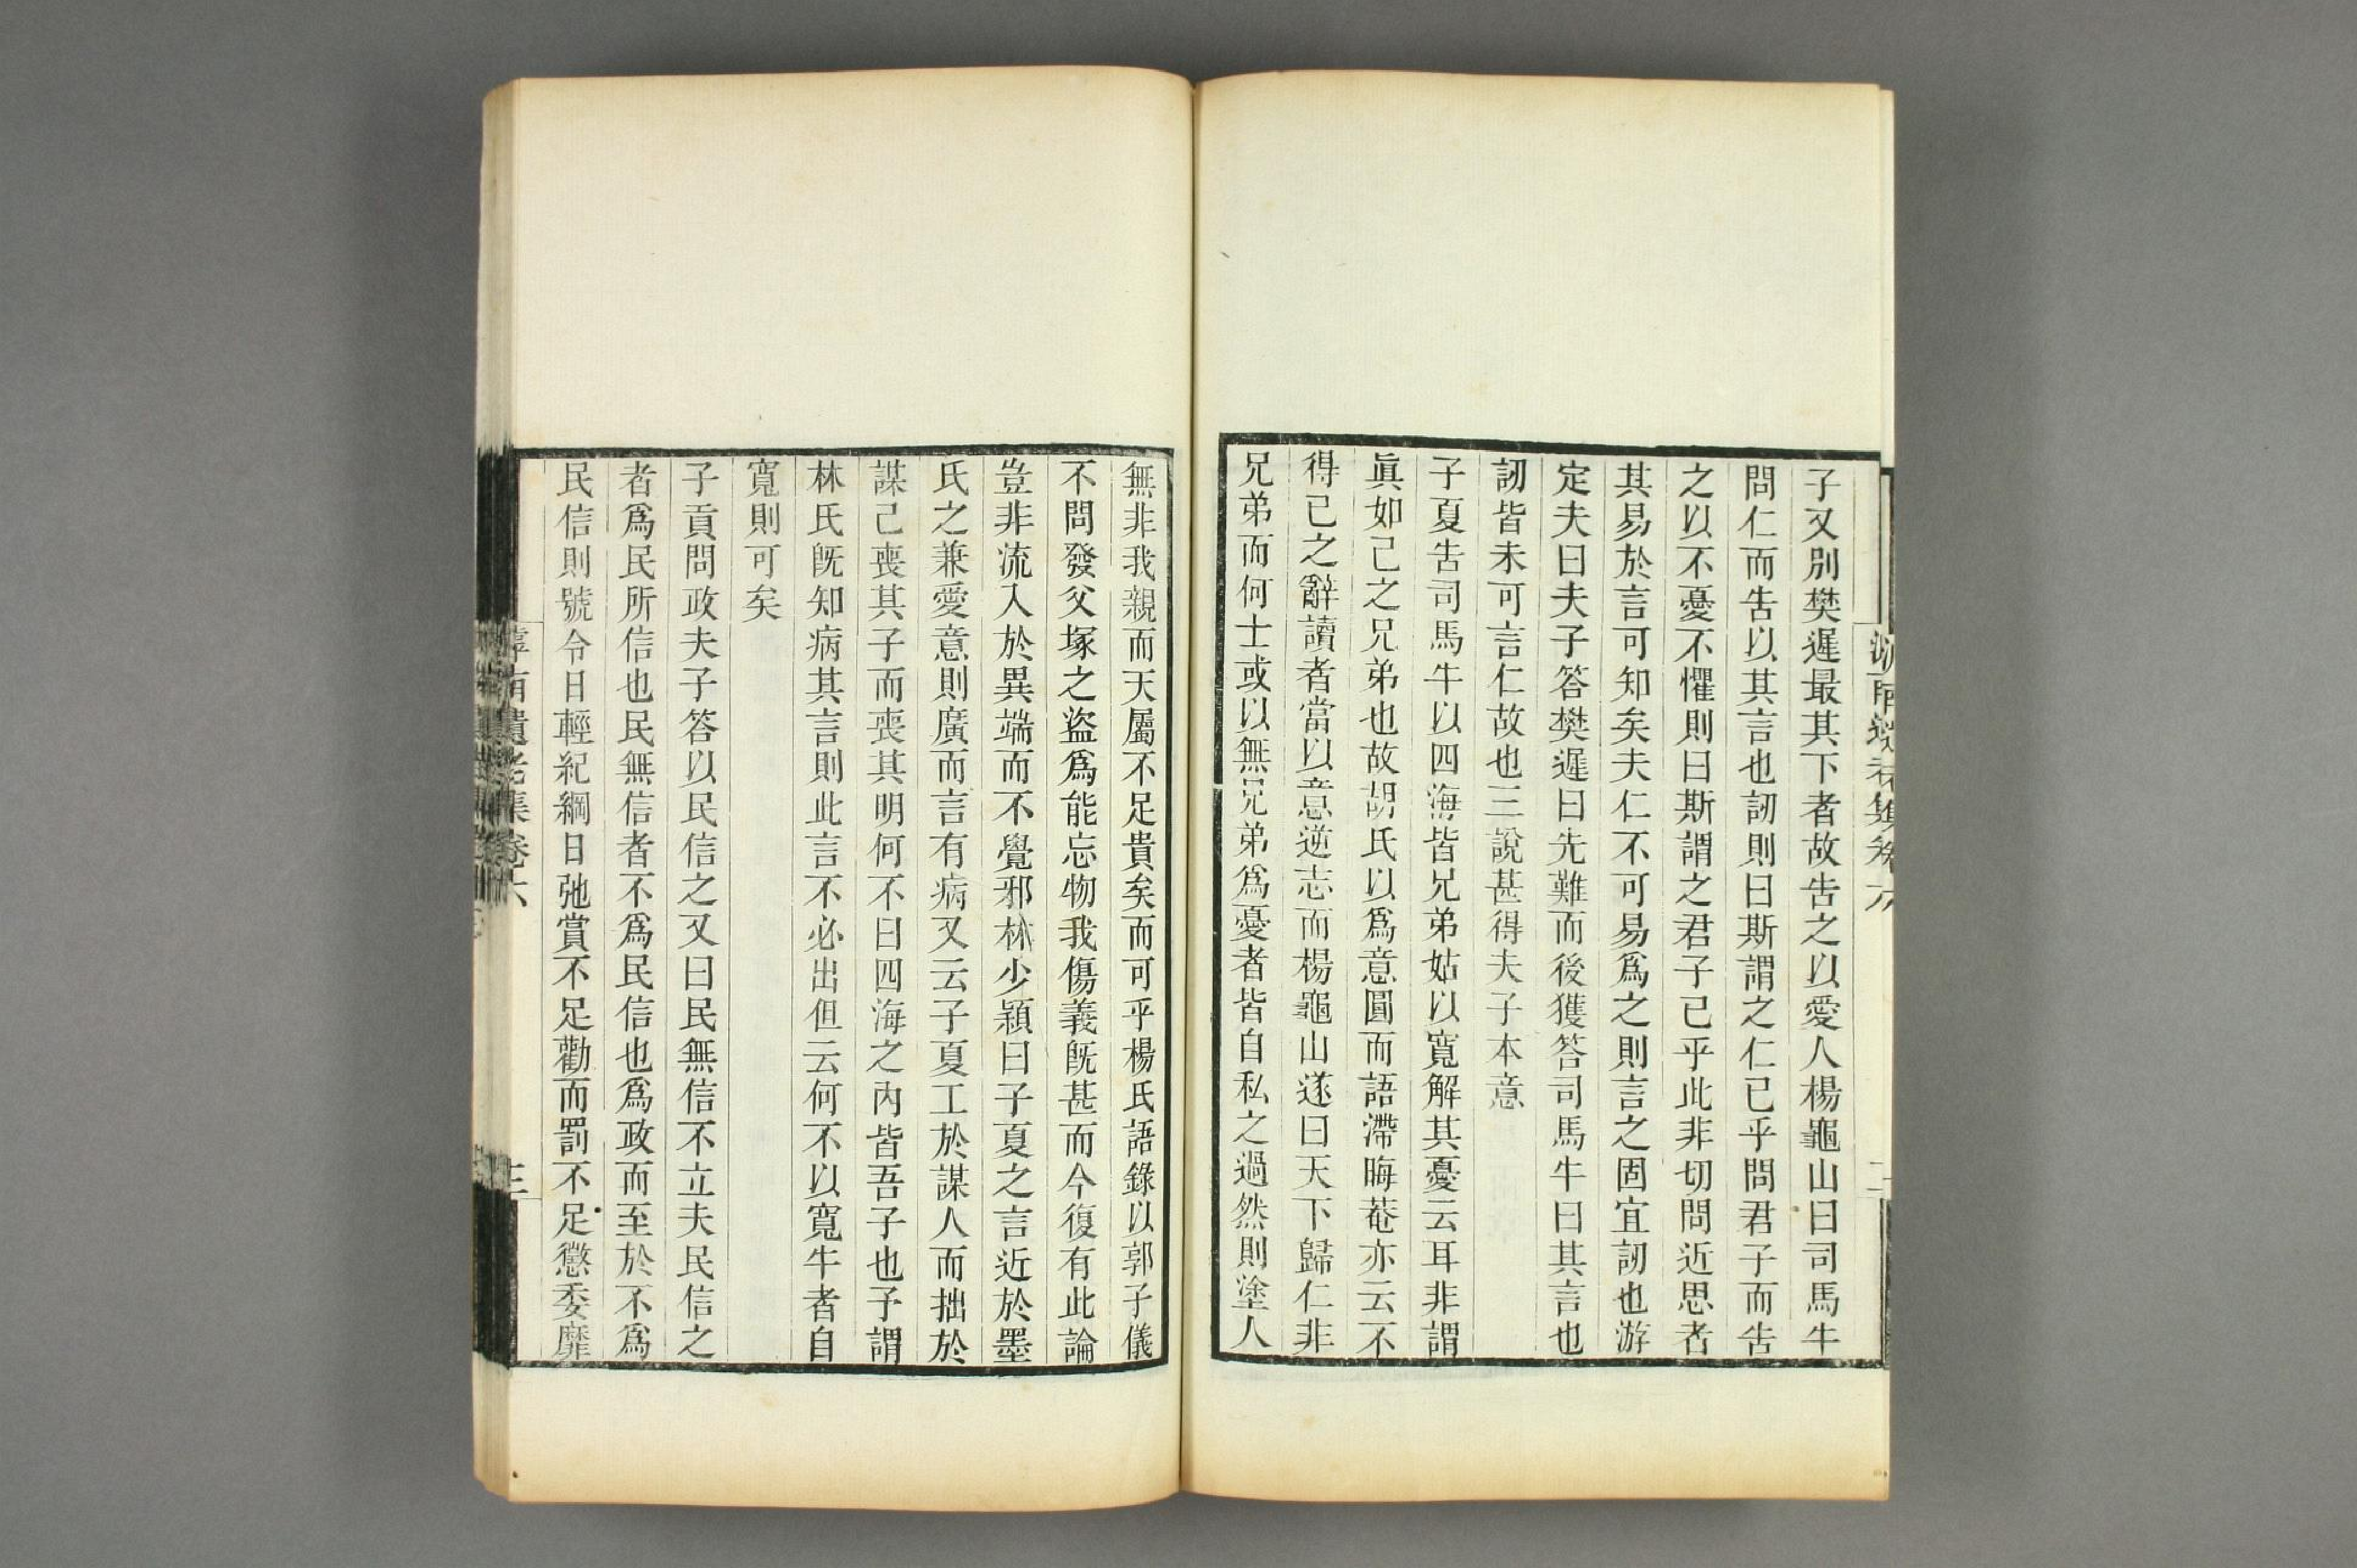 滹南遺老集卷六
二
子又別樊遲最其下者故吿之以愛人楊龜山曰司馬牛
問仁而吿以其言也訒則曰斯謂之仁已乎問君子而吿
之以不憂不懼則曰斯謂之君子已乎此非切問近思者
其易於言可知矣夫仁不可易爲之則言之固宜訒也游
定夫曰夫子答樊遲曰先難而後獲答司馬牛曰其言也
訒皆未可言仁故也三說甚得夫子本意
子夏吿司馬牛以四海皆兄弟姑以寬解其憂云耳非謂
眞如己之兄弟也故胡氏以爲意圓而語滯晦菴亦云不
得已之辭讀者當以意逆志而楊龜山遂曰天下歸仁非
兄弟而何士或以無兄弟爲憂者皆自私之過然則塗人
無非我親而天屬不足貴矣而可乎楊氏語錄以郭子儀
不問發父塚之盜爲能忘物我傷義旣甚而今復有此論
豈非流入於異端而不覺邪林少穎曰子夏之言近於墨
氏之兼愛意則廣而言有病又云子夏工於謀人而拙於
謀己喪其子而喪其明何不曰四海之內皆吾子也予謂
林氏旣知病其言則此言不必出但云何不以寬牛者自
寬則可矣
子貢問政夫子答以民信之又曰民無信不立夫民信之
者爲民所信也民無信者不爲民信也爲政而至於不爲
民信則號令日輕紀綱日弛賞不足勸而罰不足懲委靡
滹南遺老集卷六
三